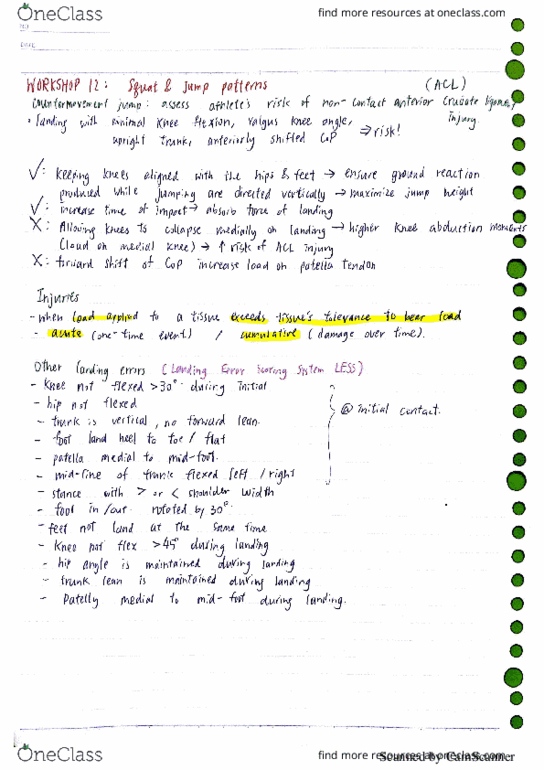 OneClass
find more resources at oneclass.com
DATE
WORKSHOP 12: Squat & Jump patterns (ACL)
Countermovement jump: assess athlete's risk of non-contact anterior cruciate ligament
injury.
· landing with minimal knee flexion, valgus knee angle,
upright trunk, anteriorly shifted CoP ⇒ risk!
✓: keeping knees aligned with the hips & feet → ensure ground reaction
produced while jumping are directed vertically → maximize jump height
✓: increase time of impact → absorb force of landing
X: Allowing knees to collapse medially on landing → higher knee abduction moments
(load on medial knee) → ↑ risk of ACL injury
X: forward shift of CoP increase load on patella tendon
Injuries
- when load applied to a tissue exceeds tissue's tolerance to bear load
- acute (one-time event) / cumulative (damage over time).
Other landing errors (Landing Error Scoring System LESS)
- Knee not flexed >30° during initial
- hip not flexed
- trunk is vertical, no forward lean.
- foot land heel to toe / flat
- patella medial to mid-foot.
- mid-line of trunk flexed left / right
@ initial contact.
- stance with > or < shoulder width
- foot in/out rotated by 30°
- feet not land at the same time
- Knee not flex >45° during landing
- hip angle is maintained during landing
- trunk lean is maintained during landing
- Patella medial to mid-foot during landing.
OneClass
find more resources at oneclass.com
Scanned by CamScanner